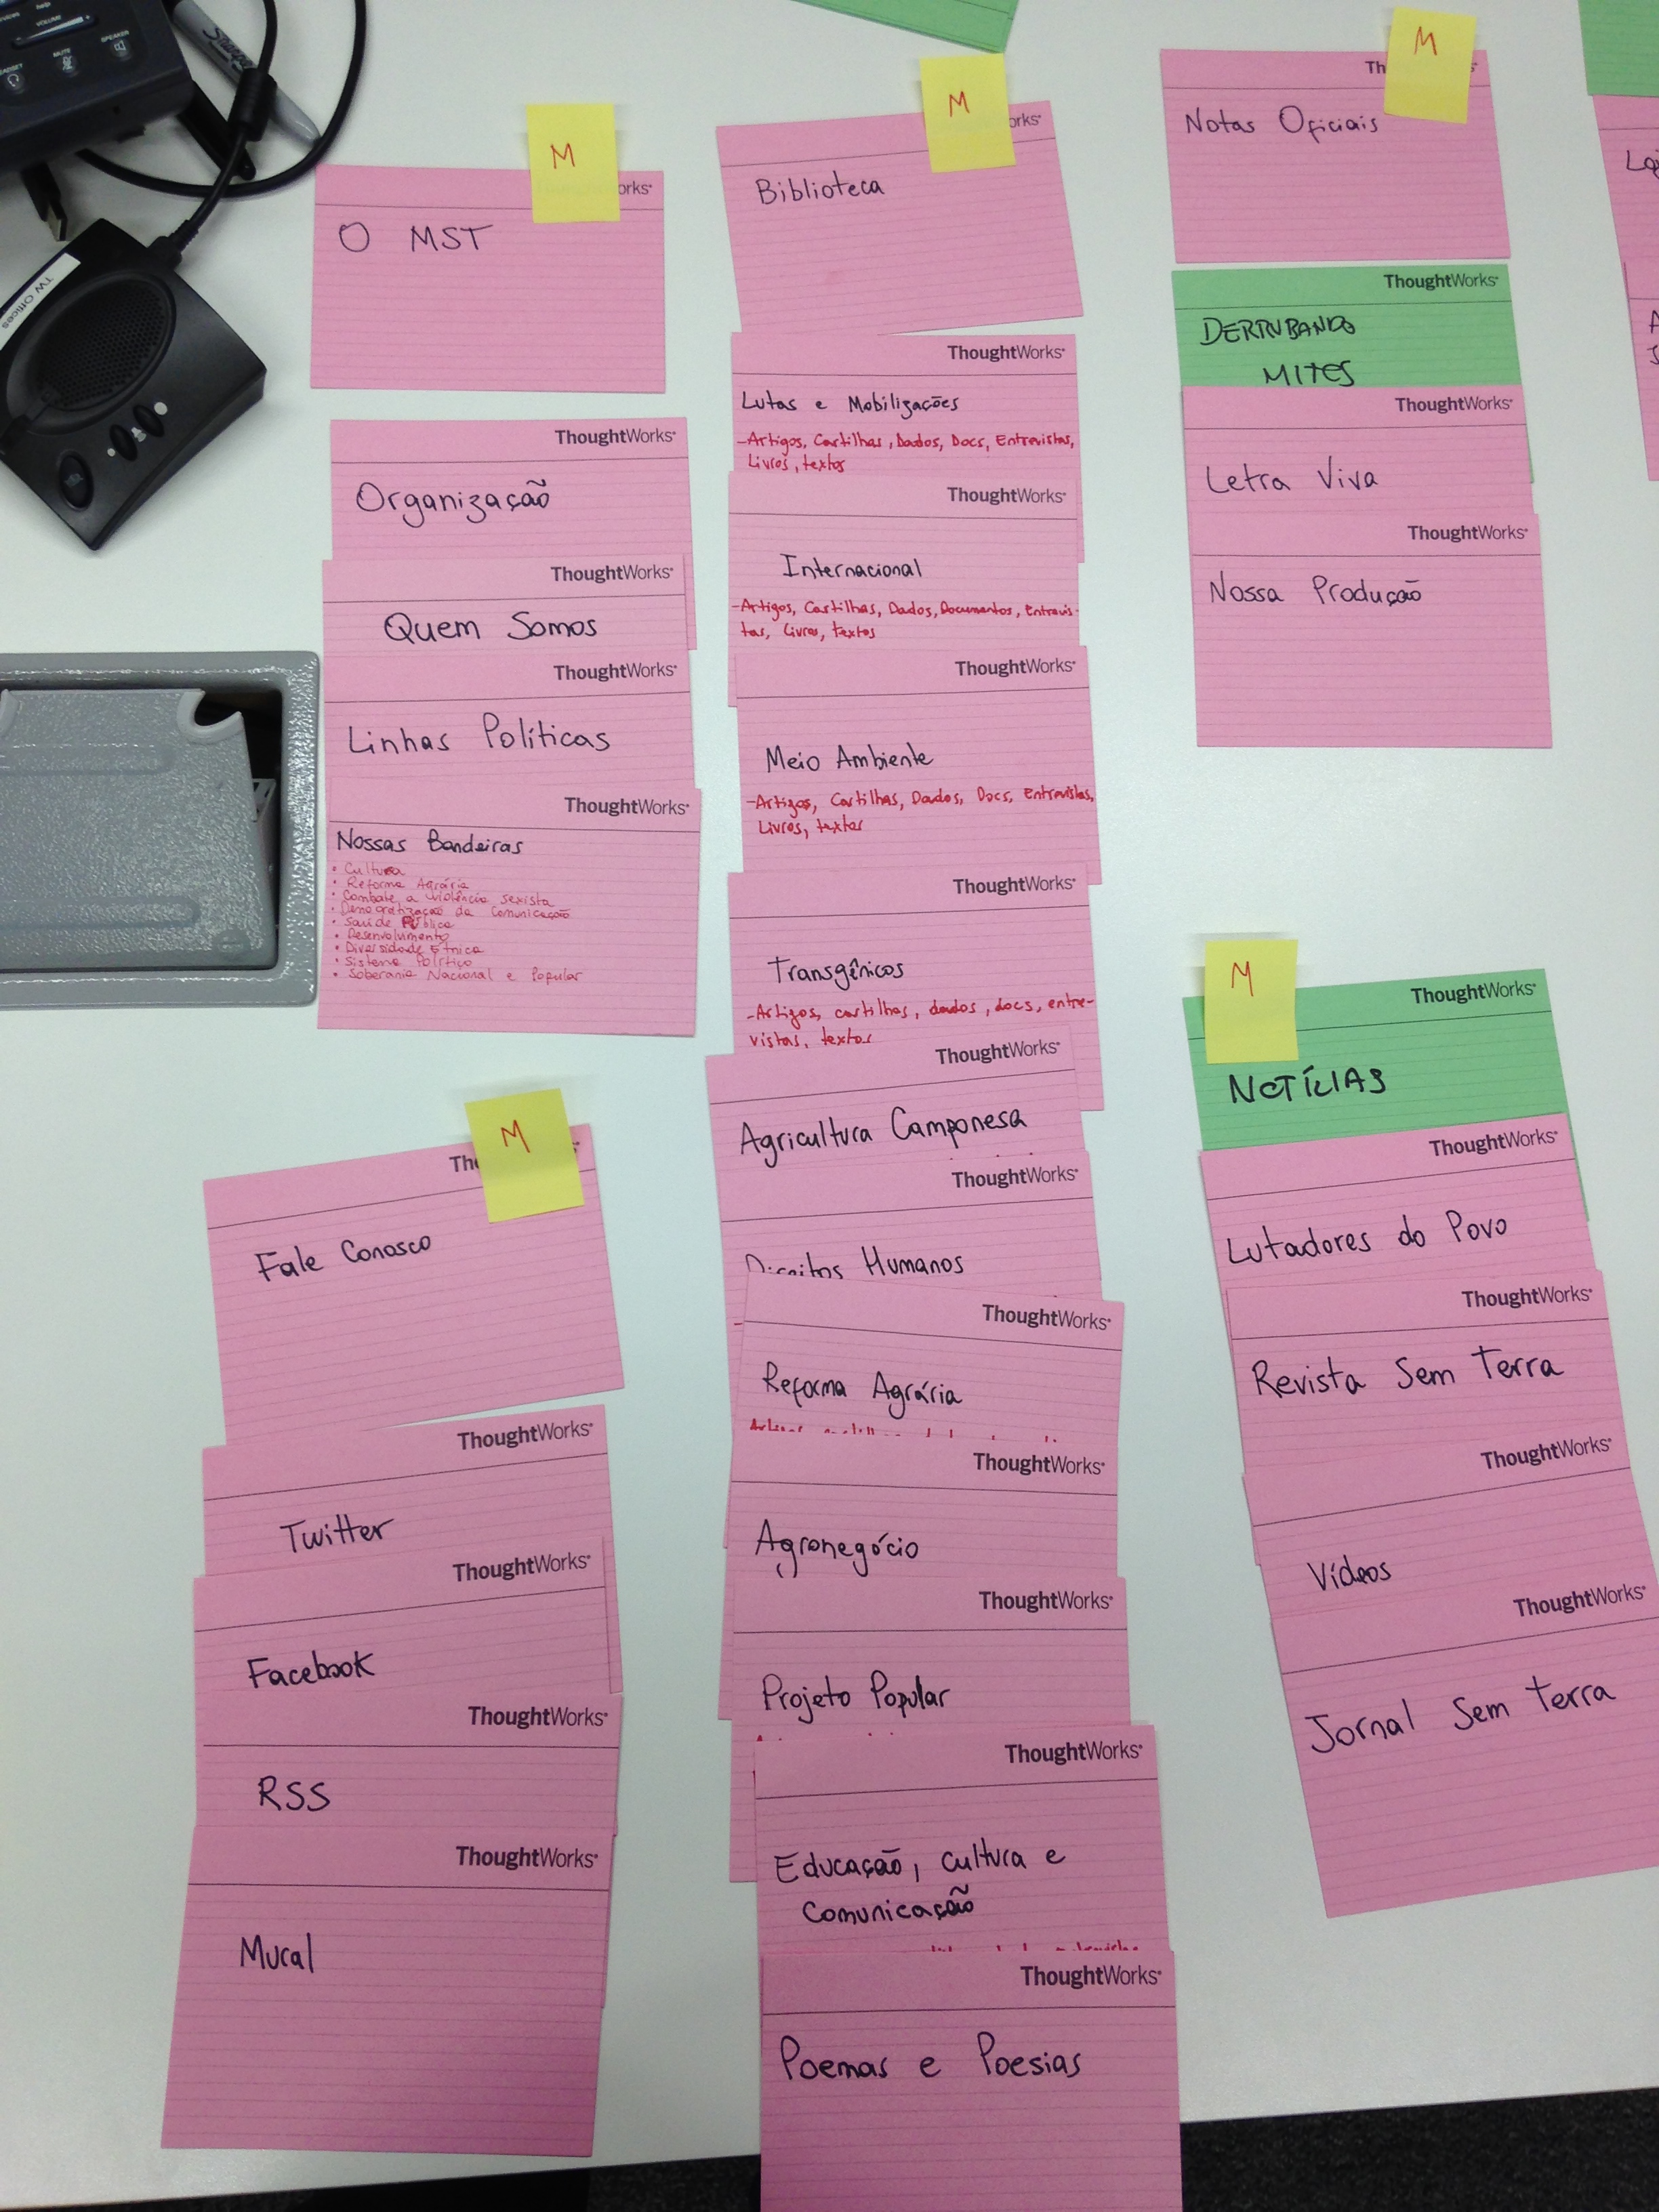 help
VOLUME
MUTE
SPEAKER
Sharpie
TW Offices
M
O MST
ThoughtWorks
Organização
ThoughtWorks
Quem Somos
ThoughtWorks
Linhas Políticas
ThoughtWorks
Nossas Bandeiras
• Cultura
• Reforma Agrária
• Combate a violência sexista
• Democratização da Comunicação
• Saúde Pública
• Desenvolvimento
• Diversidade Étnica
• Sistema Político
• Soberania Nacional e Popular
M
Fale Conosco
ThoughtWorks
Twitter
ThoughtWorks
Facebook
ThoughtWorks
RSS
ThoughtWorks
Mural
M
Biblioteca
ThoughtWorks
Lutas e Mobilizações
-Artigos, Cartilhas, Dados, Docs, Entrevistas,
Livros, textos
ThoughtWorks
Internacional
-Artigos, Cartilhas, Dados, Documentos, Entrevis-
tas, Livros, textos
ThoughtWorks
Meio Ambiente
-Artigos, Cartilhas, Dados, Docs, Entrevistas,
Livros, textos
ThoughtWorks
Transgênicos
-Artigos, cartilhas, dados, docs, entre-
vistas, textos
ThoughtWorks
Agricultura Camponesa
ThoughtWorks
Direitos Humanos
ThoughtWorks
Reforma Agrária
ThoughtWorks
Agronegócio
ThoughtWorks
Projeto Popular
ThoughtWorks
Educação, Cultura e
Comunicação
ThoughtWorks
Poemas e Poesias
M
Notas Oficiais
ThoughtWorks
DERRUBANDO
MITOS
ThoughtWorks
Letra Viva
ThoughtWorks
Nossa Produção
M
ThoughtWorks
NOTÍCIAS
ThoughtWorks
Lutadores do Povo
ThoughtWorks
Revista Sem Terra
ThoughtWorks
Vídeos
ThoughtWorks
Jornal Sem Terra